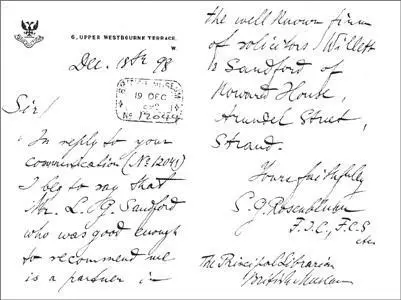 6, UPPER WESTBOURNE TERRACE,
W.
Dec. 18th 98
BRITISH MUSEUM
19 DEC
No
Sir/
In reply to your
communication (No 12041)
I beg to say that
Mr. L. G. Sandford
who was good enough
to recommend me
is a partner in
the well known firm
of solicitors Willett
& Sandford of
Howard House,
Arundel Street,
Strand.
Yours faithfully
S. G. Rosenblum
F.I.C., F.C.S
etc.
The Principal Librarian
British Museum